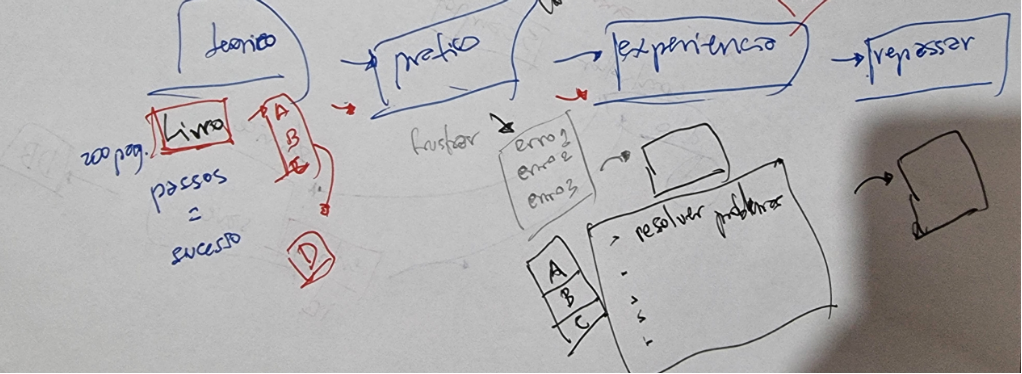 teorico
pratico
experiencia
repassar
200 pag.
Livro
A
B
C
passos
=
sucesso
D
frustrar
erro 1
erro 2
erro 3
> resolver problemas
A
B
C